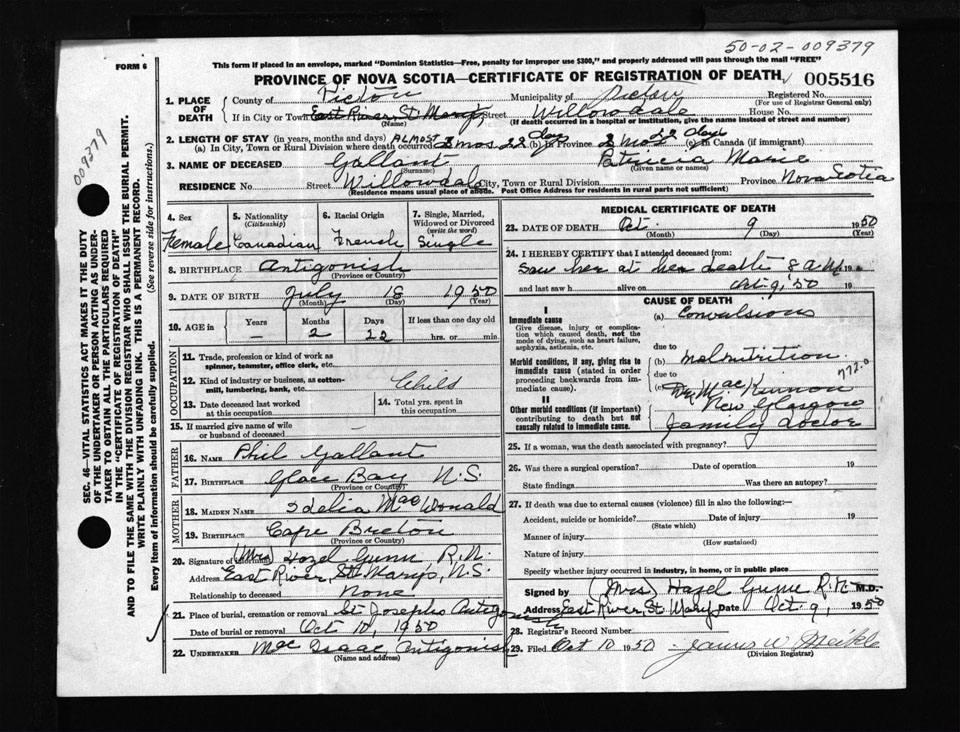 50-02-009379
This form if placed in an envelope, marked "Dominion Statistics—Free, penalty for improper use $300," and properly addressed will pass through the mail "FREE"
FORM 6
PROVINCE OF NOVA SCOTIA—CERTIFICATE OF REGISTRATION OF DEATH 005516
009379
SEC. 46—VITAL STATISTICS ACT MAKES IT THE DUTY
OF THE UNDERTAKER OR PERSON ACTING AS UNDER-
TAKER TO OBTAIN ALL THE PARTICULARS REQUIRED
IN THE "CERTIFICATE OF REGISTRATION OF DEATH"
AND TO FILE THE SAME WITH THE DIVISION REGISTRAR WHO SHALL ISSUE THE BURIAL PERMIT.
WRITE PLAINLY WITH UNFADING INK. THIS IS A PERMANENT RECORD.
Every item of information should be carefully supplied. (See reverse side for instructions.)
1. PLACE OF DEATH
County of Pictou Municipality of Pictou Registered No.
(For use of Registrar General only)
If in City or Town East River St Marys Street Willowdale House No.
(Name) (If death occurred in a hospital or institution, give the name instead of street and number)
2. LENGTH OF STAY (in years, months and days)
(a) In City, Town or Rural Division where death occurred Almost 3 mos 22 days (b) In Province 2 mos 22 days (c) In Canada (if immigrant)
3. NAME OF DECEASED Gallant Patricia Marie
(Surname) (Given name or names)
RESIDENCE No. Street Willowdale City, Town or Rural Division Province Nova Scotia
(Residence means usual place of abode. Post Office Address for residents in rural parts not sufficient)
4. Sex
Female
5. Nationality
(Citizenship)
Canadian
6. Racial Origin
French
7. Single, Married, Widowed or Divorced
(write the word)
Single
8. BIRTHPLACE Antigonish
(Province or Country)
9. DATE OF BIRTH July 18 1950
(Month) (Day) (Year)
10. AGE in Years Months Days If less than one day old
— 2 22 hrs. or min.
OCCUPATION
11. Trade, profession or kind of work as
spinner, teamster, office clerk, etc.
12. Kind of industry or business, as cotton-
mill, lumbering, bank, etc. Child
13. Date deceased last worked
at this occupation
14. Total yrs. spent in
this occupation
15. If married give name of wife
or husband of deceased
FATHER
16. Name Phil Gallant
17. Birthplace Glace Bay N.S.
(Province or Country)
MOTHER
18. Maiden Name Idelia MacDonald
19. Birthplace Cape Breton
(Province or Country)
20. Signature of informant (Mrs) Hazel Gunn R.N.
Address East River, St Mary's, N.S.
Relationship to deceased None
21. Place of burial, cremation or removal St Josephs Antigonish
Date of burial or removal Oct 10, 1950
22. UNDERTAKER MacIsaac Antigonish
(Name and address)
MEDICAL CERTIFICATE OF DEATH
23. DATE OF DEATH Oct. 9 1950
(Month) (Day) (Year)
24. I HEREBY CERTIFY that I attended deceased from:
Saw her at her death 8 AM 19
and last saw h alive on Oct 9, '50 19
CAUSE OF DEATH
I
Immediate cause
Give disease, injury or complica-
tion which caused death, not the
mode of dying, such as heart failure,
asphyxia, asthenia, etc.
(a) Convulsions
due to
Morbid conditions, if any, giving rise to
immediate cause (stated in order
proceeding backwards from im-
mediate cause).
(b) Malnutrition.
772.0
due to
(c) Dr MacKinnon
New Glasgow
family doctor
II
Other morbid conditions (if important)
contributing to death but not
causally related to immediate cause.
25. If a woman, was the death associated with pregnancy?
26. Was there a surgical operation? Date of operation 19
State findings Was there an autopsy?
27. If death was due to external causes (violence) fill in also the following:—
Accident, suicide or homicide? Date of injury 19
(State which)
Manner of injury
(How sustained)
Nature of injury
Specify whether injury occurred in industry, in home, or in public place
Signed by (Mrs) Hazel Gunn R.N. M.D.
Address East River, St. Marys Date Oct. 9, 1950
28. Registrar's Record Number
29. Filed Oct 10 1950 James W Meikle
(Division Registrar)